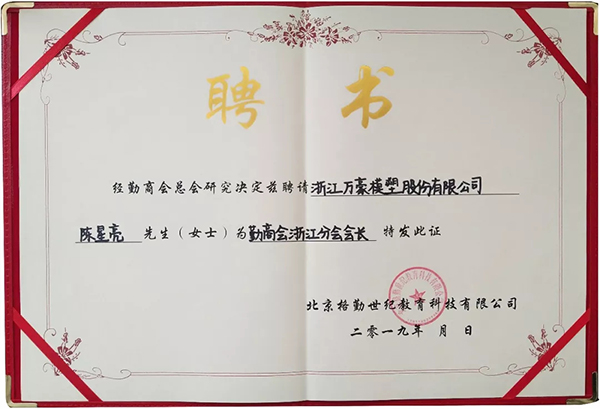 聘书
经勤商会总会研究决定兹聘请浙江万豪模塑股份有限公司
陈星亮 先生（女士）为勤商会浙江分会会长 特发此证
北京格勤世纪教育科技有限公司
二零一九年 月 日